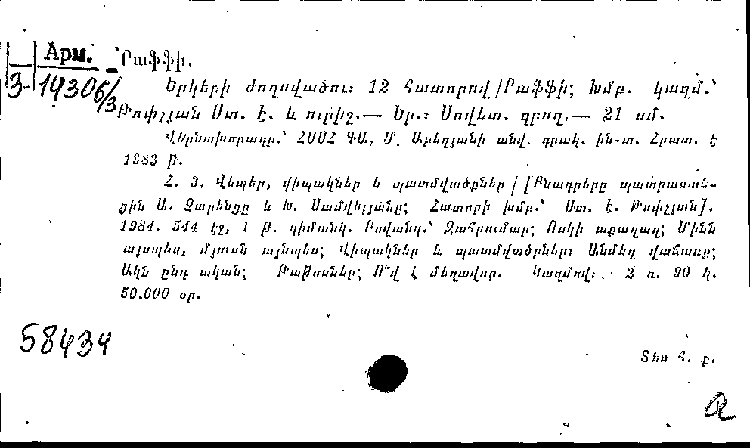 Арм. Րաֆֆի.
3-14306/3
Երկերի ժողովածու: 12 հատորով /Րաֆֆի; Խմբ. կազմ.՝
Թոփչյան Ստ. Է. և ուրիշ.— Եր.: Սովետ. գրող.— 21 սմ.
Վերնախորագր.՝ ՀՍՍՀ ԳԱ, Մ. Աբեղյանի անվ. գրակ. ին-տ. Հրատ. է
1983 թ.
Հ. 3. Վեպեր, վիպակներ և պատմվածքներ / [Բնագրերը պատրաստե-
ցին Ա. Զարենցը և Խ. Սամվելյանը; Հատորի խմբ.՝ Ստ. Է. Թոփչյան].
1984. 544 էջ, 1 թ. դիմանկ. Բովանդ.՝ Զահրումար; Ոսկի աքաղաղ; Մինն
այսպես, մյուսն այնպես; Վիպակներ և պատմվածքներ: Անմեղ վաճառք;
Ակն ընդ ական; Բաթոսներ; Ո՞վ է մեղավոր. Կազմով: 2 ռ. 90 կ.
50.000 օր.
58434
Տես Հ. ք.